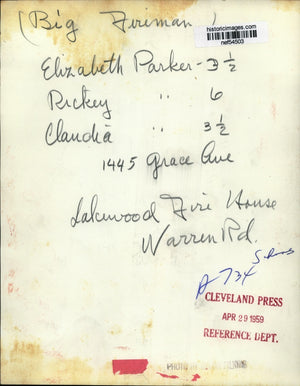 (Big Fireman)
historicimages.com
nef54503
Elizabeth Parker - 3 1/2
Rickey " 6
Claudia " 3 1/2
1445 Grace Ave
Lakewood Fire House
Warren Rd.
A-734
CLEVELAND PRESS
APR 29 1959
REFERENCE DEPT.
PHOTO